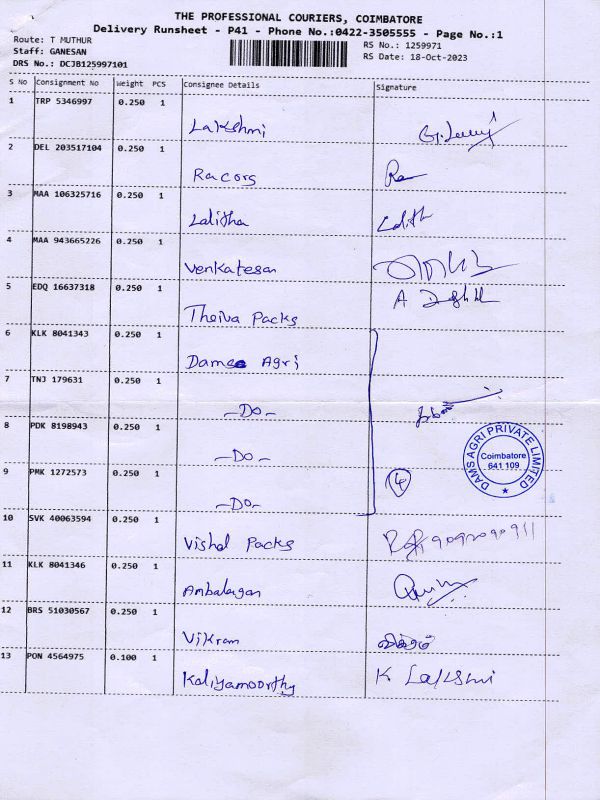 THE PROFESSIONAL COURIERS, COIMBATORE
Delivery Runsheet - P41 - Phone No.:0422-3505555 - Page No.:1
Route: T MUTHUR
RS No.: 1259971
Staff: GANESAN
RS Date: 18-Oct-2023
DRS No.: DCJB125997101
S No Consignment No Weight PCS Consignee Details Signature
1 TRP 5346997 0.250 1 Lakshmi
2 DEL 203517104 0.250 1 Racors
3 MAA 106325716 0.250 1 Lalitha Lalith
4 MAA 943665226 0.250 1 Venkatesan
5 EDQ 16637318 0.250 1 Theiva Packs A
6 KLK 8041343 0.250 1 Dames Agri
7 TNJ 179631 0.250 1 -Do-
8 PDK 8198943 0.250 1 -Do-
DAMS AGRI PRIVATE LIMITED
Coimbatore
641 109
9 PMK 1272573 0.250 1 -Do- 4
10 SVK 40063594 0.250 1 Vishal Packs
11 KLK 8041346 0.250 1 Ambalagan
12 BRS 51030567 0.250 1 Vikram விக்ரம்
13 PON 4564975 0.100 1 Kaliyamoorthy K Lakshmi